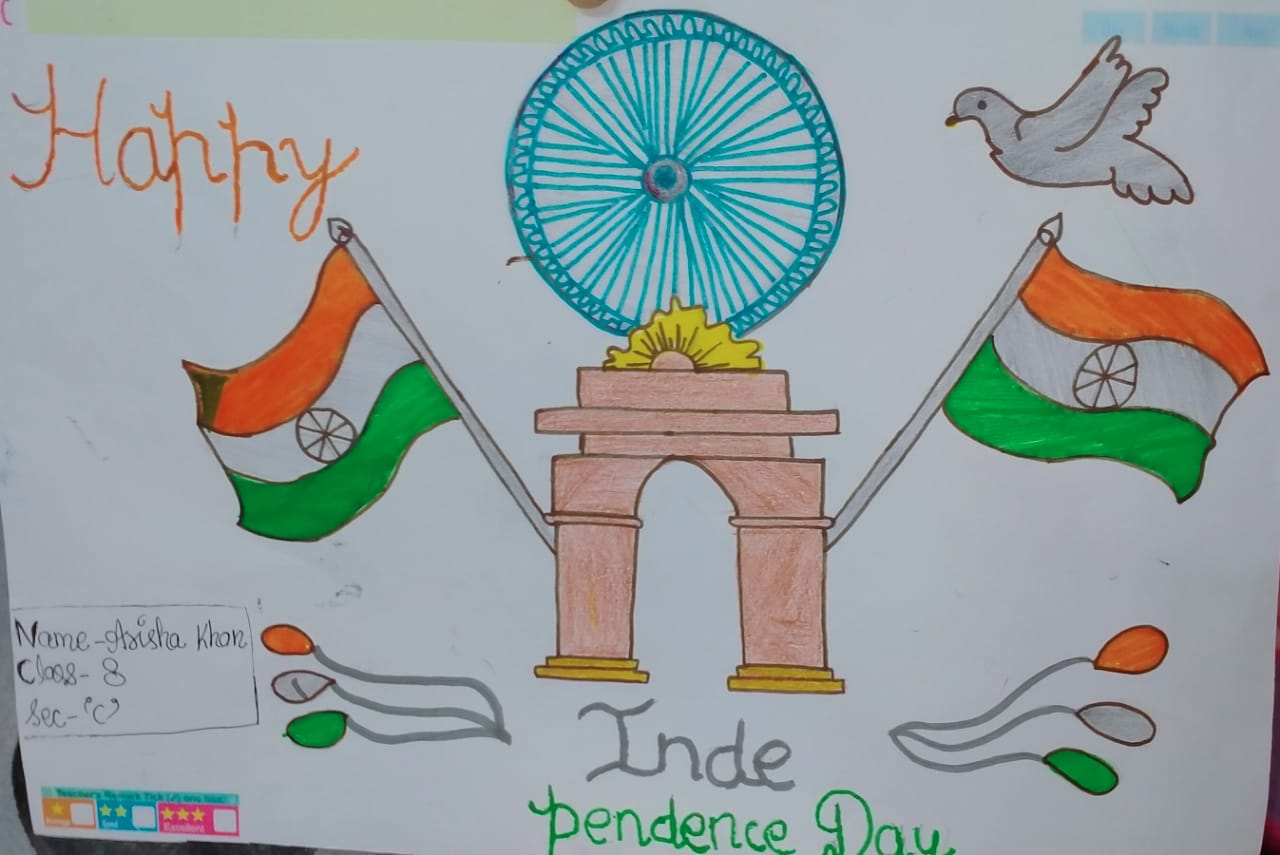 Happy
Name-Arisha Khan
Class- 8
Sec-"C"
Inde
pendence Day
Teacher's Remark Tick (✓) one box:
Good
Excellent